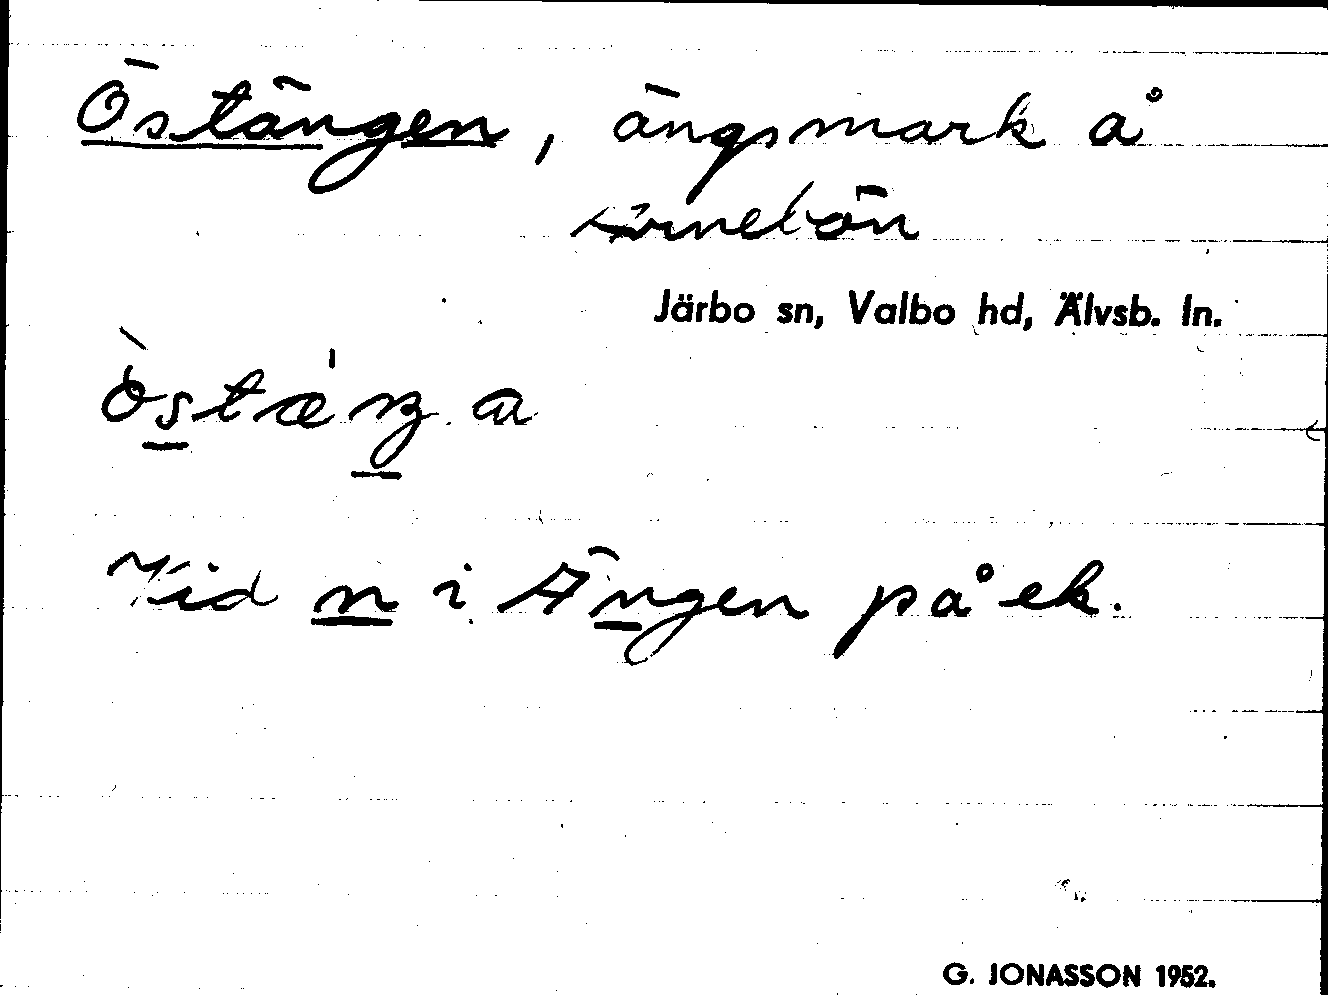 Östängen, ängsmark å
Järbo sn, Valbo hd, Älvsb. ln.
Vid n i Ängen på ek.
G. JONASSON 1952.